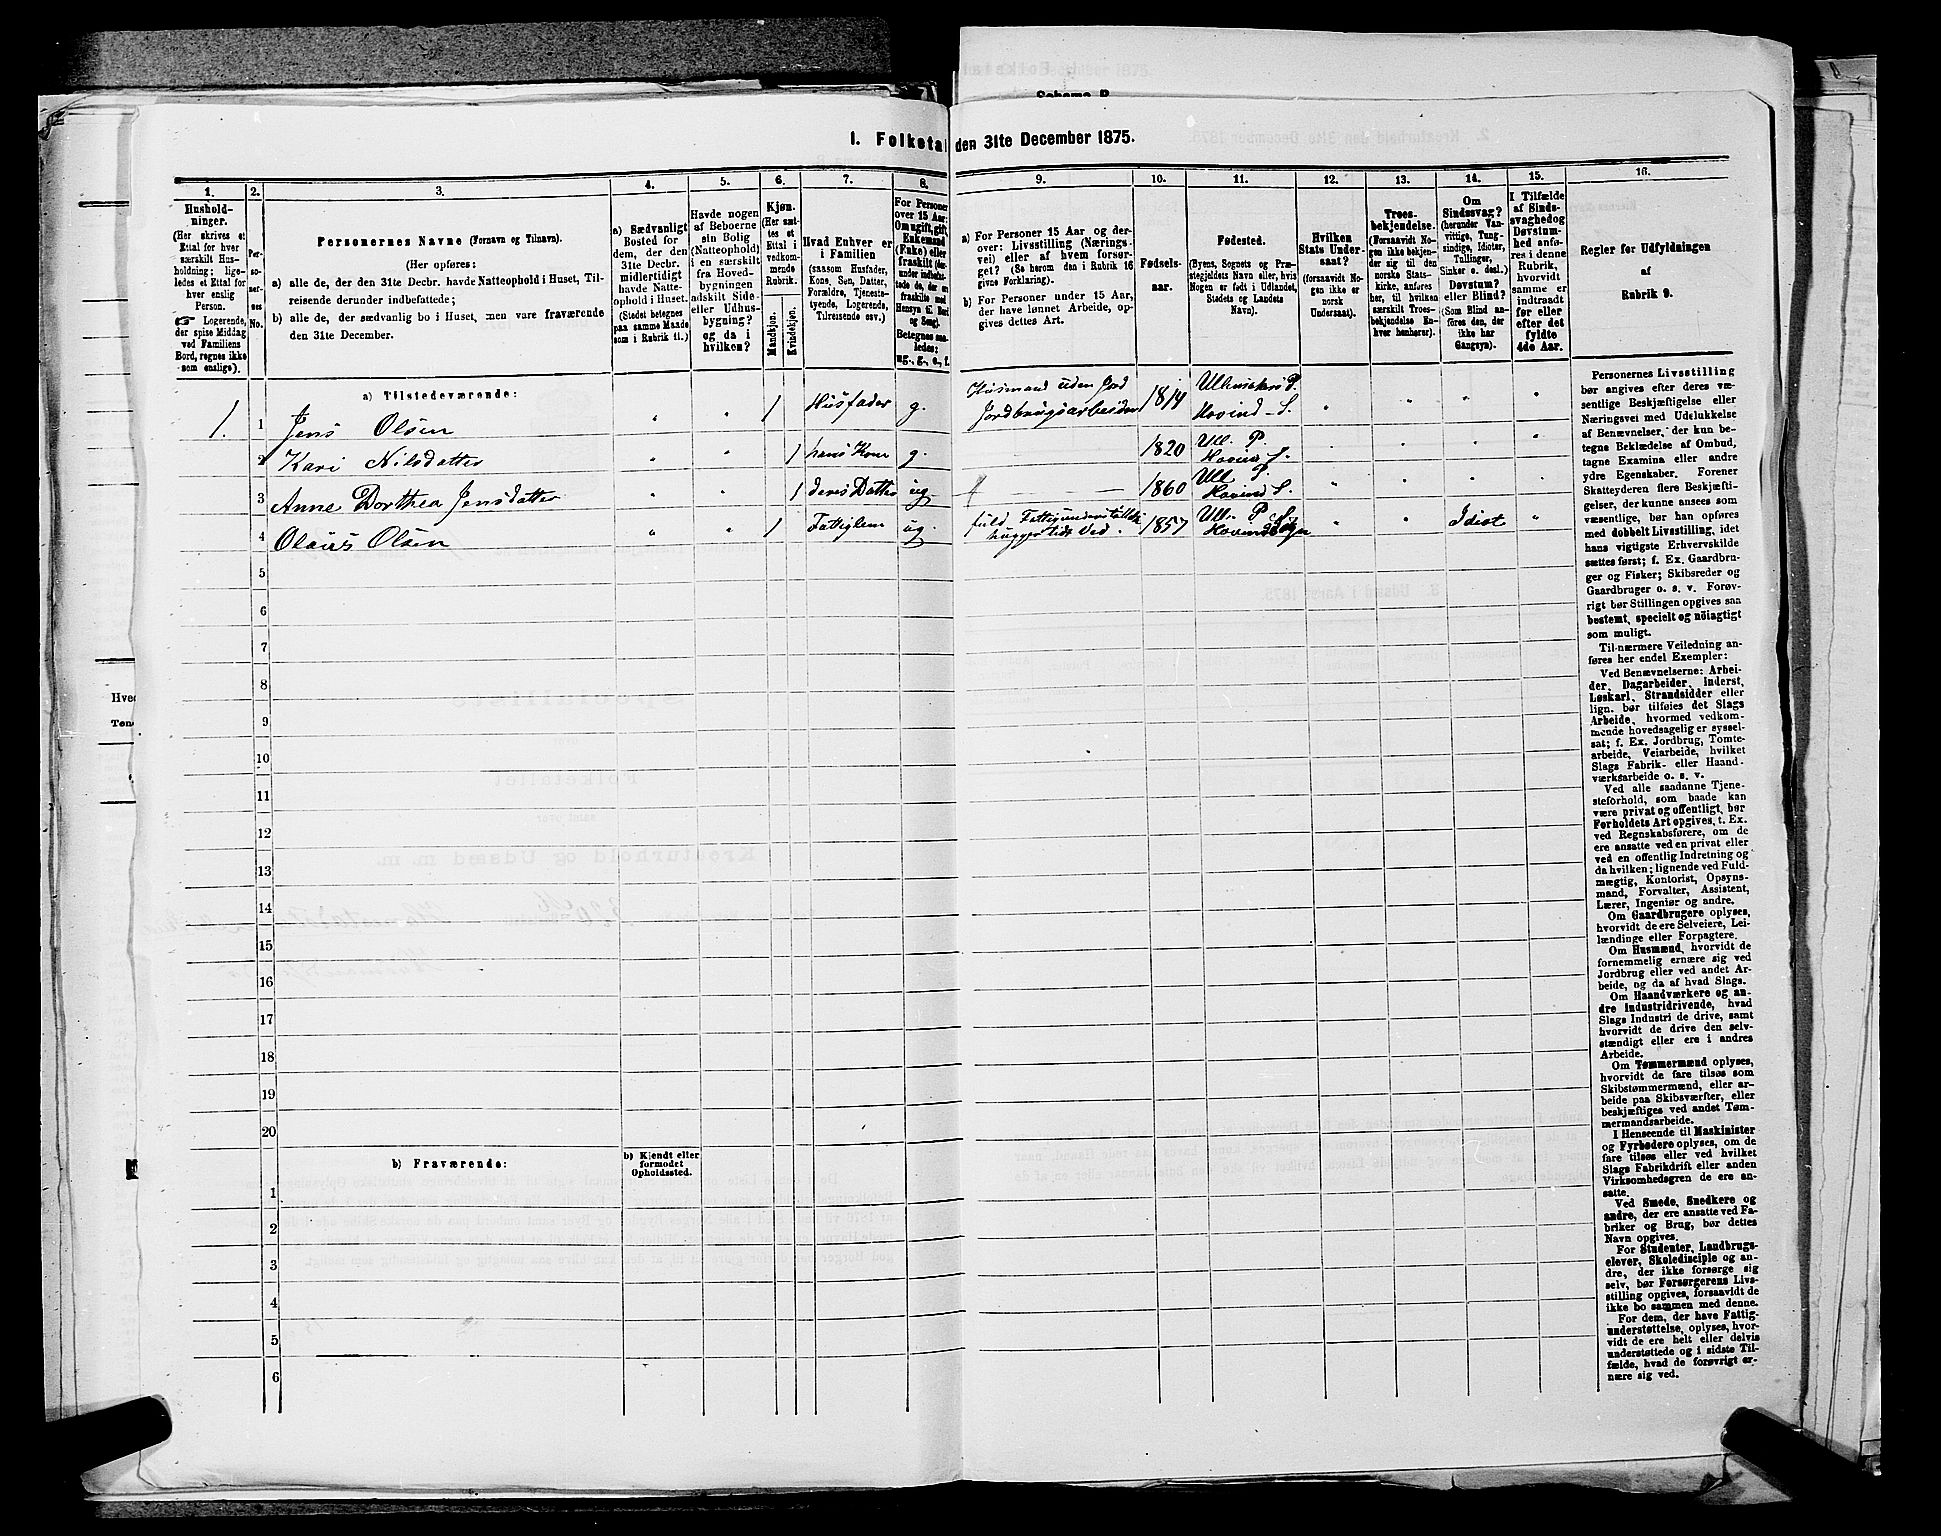 Schema B
1. Folketal den 31te December 1875.
1.
2.
3.
4.
5.
6.
7.
8.
9.
10.
11.
12.
13.
14.
15.
16.
Hushold-
ninger.
(Her skrives et
Ettal for hver
særskilt Hus-
holdning; lige-
ledes et Ettal for
hver enslig
Person.
☞ Logerende,
der spise Middag
ved Familiens
Bord, regnes ikke
som enslige).
Per-
so-
ner-
nes
No.
Personernes Navne (Fornavn og Tilnavn).
(Her opføres:
a) alle de, der den 31te Decbr. havde Natteophold i Huset, Til-
reisende derunder indbefattede;
b) alle de, der sædvanlig bo i Huset, men vare fraværende
den 31te December.
a) Sædvanligt
Bosted for
dem, der den
31te Decbr.
midlertidigt
havde Natte-
ophold i Huset.
(Stedet betegnes
paa samme Maade
som i Rubrik 11.)
Havde nogen
af Beboerne
sin Bolig
(Natteophold)
i en særskilt
fra Hoved-
bygningen
adskilt Side-
eller Udhus-
bygning?
og da i
hvilken?
Kjøn.
(Her sæt-
tes et
Ettal i
vedkom-
mende
Rubrik.
Mandkjøn.
Kvindekjøn.
Hvad Enhver er
i Familien
(saasom Husfader,
Kone, Søn, Datter,
Forældre, Tjeneste-
tyende, Logerende,
Tilreisende osv.)
For Personer
over 15 Aar:
Om ugift, gift,
Enkemand
(Enke) eller
fraskilt
Betegnes saa-
ledes:
ug., g., e., f.
a) For Personer 15 Aar og der-
over: Livsstilling (Nærings-
vei) eller af hvem forsør-
get? (Se herom den i Rubrik 16
givne Forklaring).
b) For Personer under 15 Aar,
der have lønnet Arbeide, op-
gives dettes Art.
Fødsels-
aar.
Fødested.
(Byens, Sognets og Præ-
stegjeldets Navn eller, hvis
Nogen er født i Udlandet,
Stedets og Landets
Navn).
Hvilken
Stats Under-
saat?
(forsaavidt No-
gen ikke er
norsk
Undersaat).
Troes-
bekjendelse.
(Forsaavidt No-
gen ikke bekjen-
der sig til den
norske Stats-
kirke, anføres
her, til hvilken
særskilt Troes-
bekjendelse En-
hver henhører).
Om
Sindssvag?
(herunder Van-
vittige, Tung-
sindige, Idioter,
Tullinger,
Sinker o. desl.)
Døvstum?
eller Blind?
(Som Blind an-
føres den, der
ikke har
Gangsyn).
I Tilfælde
af Sinds-
svaghedog
Døvstum-
hed anfø-
res i denne
Rubrik,
hvorvidt
samme er
indtraadt
før eller
efter det
fyldte
4de Aar.
Regler for Udfyldningen
af
Rubrik 9.
a) Tilstedeværende:
1. 1 Jens Olsen " " 1 Husfader g. Husmand uden Jord Jordbrugsarbeider 1814 Ullensakers P. Hovind S. " " " "
2 Kari Nilsdatter " " 1 hans Kone g. 1820 Ull. P. Hovin S. " " " "
3 Anne Dorthea Jensdatter " " 1 deres Datter ug 1860 Ull P. Hovind S. " " " "
4 Olaus Olsen " " 1 Fattiglem ug. fuld Fattigunderstøttelse hugger lidt Ved. 1857 Ull. P. Hovind Sogn " " Idiot "
5
6
7
8
9
10
11
12
13
14
15
16
17
18
19
20
b) Fraværende:
b) Kjendt eller
formodet
Opholdssted.
1
2
3
4
5
6
Personernes Livsstilling
bør angives efter deres væ-
sentlige Beskjæftigelse eller
Næringsvei med Udelukkelse
af Benævnelser, der kun be-
tegne Beklædelse af Ombud,
tagne Examina eller andre
ydre Egenskaber. Forener
Skatteyderen flere Beskjæfti-
gelser, der kunne ansees som
væsentlige, bør han opføres
med dobbelt Livsstilling, idet
hans vigtigste Erhvervskilde
sættes først; f. Ex. Gaardbru-
ger og Fisker; Skibsreder og
Gaardbruger o. s. v. Forøv-
rigt bør Stillingen opgives saa
bestemt, specielt og nöiagtigt
som muligt.
Til nærmere Veiledning an-
føres her endel Exempler:
Ved Benævnelserne: Arbei-
der, Dagarbeider, Inderst,
Løskarl, Strandsidder eller
lign. bør tilføies det Slags
Arbeide, hvormed vedkom-
mende hovedsagelig er syssel-
sat; f. Ex. Jordbrug, Tomte-
arbeide, Veiarbeide, hvilket
Slags Fabrik- eller Haand-
værksarbeide o. s. v.
Ved alle saadanne Tjene-
steforhold, som baade kan
være privat og offentligt, bør
Forholdets Art opgives, t. Ex.
ved Regnskabsførere, om de
ere ansatte ved en privat eller
ved en offentlig Indretning og
da hvilken; lignende ved Fuld-
mægtig, Kontorist, Opsyns-
mand, Forvalter, Assistent,
Lærer, Ingeniør og andre.
Om Gaardbrugere oplyses,
hvorvidt de ere Selveiere, Lei-
lændinge eller Forpagtere.
Om Husmænd, hvorvidt de
fornemmelig ernære sig ved
Jordbrug eller ved andet Ar-
beide, og da af hvad Slags.
Om Haandværkere og an-
dre Industridrivende, hvad
Slags Industri de drive, samt
hvorvidt de drive den selv-
stændigt eller ere i andres
Arbeide.
Om Tømmermænd oplyses,
hvorvidt de fare tilsøs som
Skibstømmermænd, eller ar-
beide paa Skibsværfter, eller
beskjæftiges ved andet Tøm-
mermandsarbeide.
I Henseende til Maskinister
og Fyrbødere oplyses, om de
fare tilsøs eller ved hvilket
Slags Fabrikdrift eller anden
Virksomhedsgren de ere an-
satte.
Ved Smede, Snedkere og
andre, der ere ansatte ved Fa-
briker og Brug, bør dettes
Navn opgives.
For Studenter, Landbrugs-
elever, Skoledisciple og an-
dre, der ikke forsørge sig
selv, bør Forsørgerens Livs-
stilling opgives, forsaavidt de
ikke bo sammen med denne.
For dem, der have Fattig-
understøttelse, oplyses, hvor-
vidt de ere helt eller delvis
understøttede og i sidste Til-
fælde, hvad de forøvrigt er-
nære sig ved.